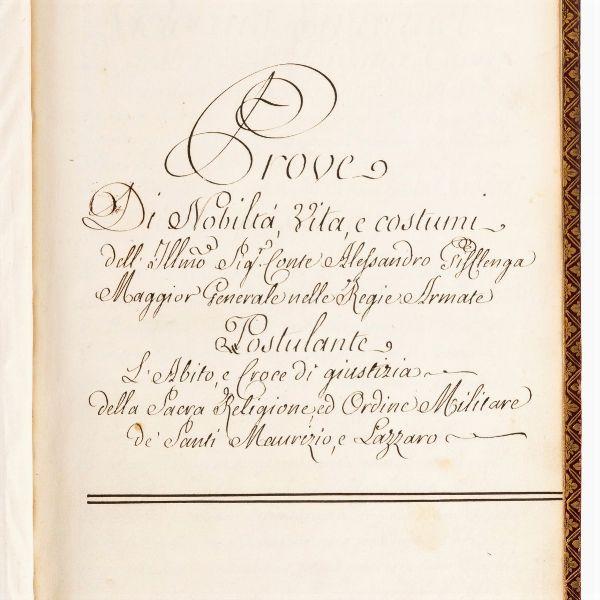 Prove
Di Nobiltá, Vita, e costumi
dell' Illmo Sigr. Conte Alessandro Gifflenga
Maggior Generale nelle Regie Armate
Postulante
L'Abito, e Croce di giustizia
della Sacra Religione, ed Ordine Militare
de' Santi Maurizio, e Lazzaro